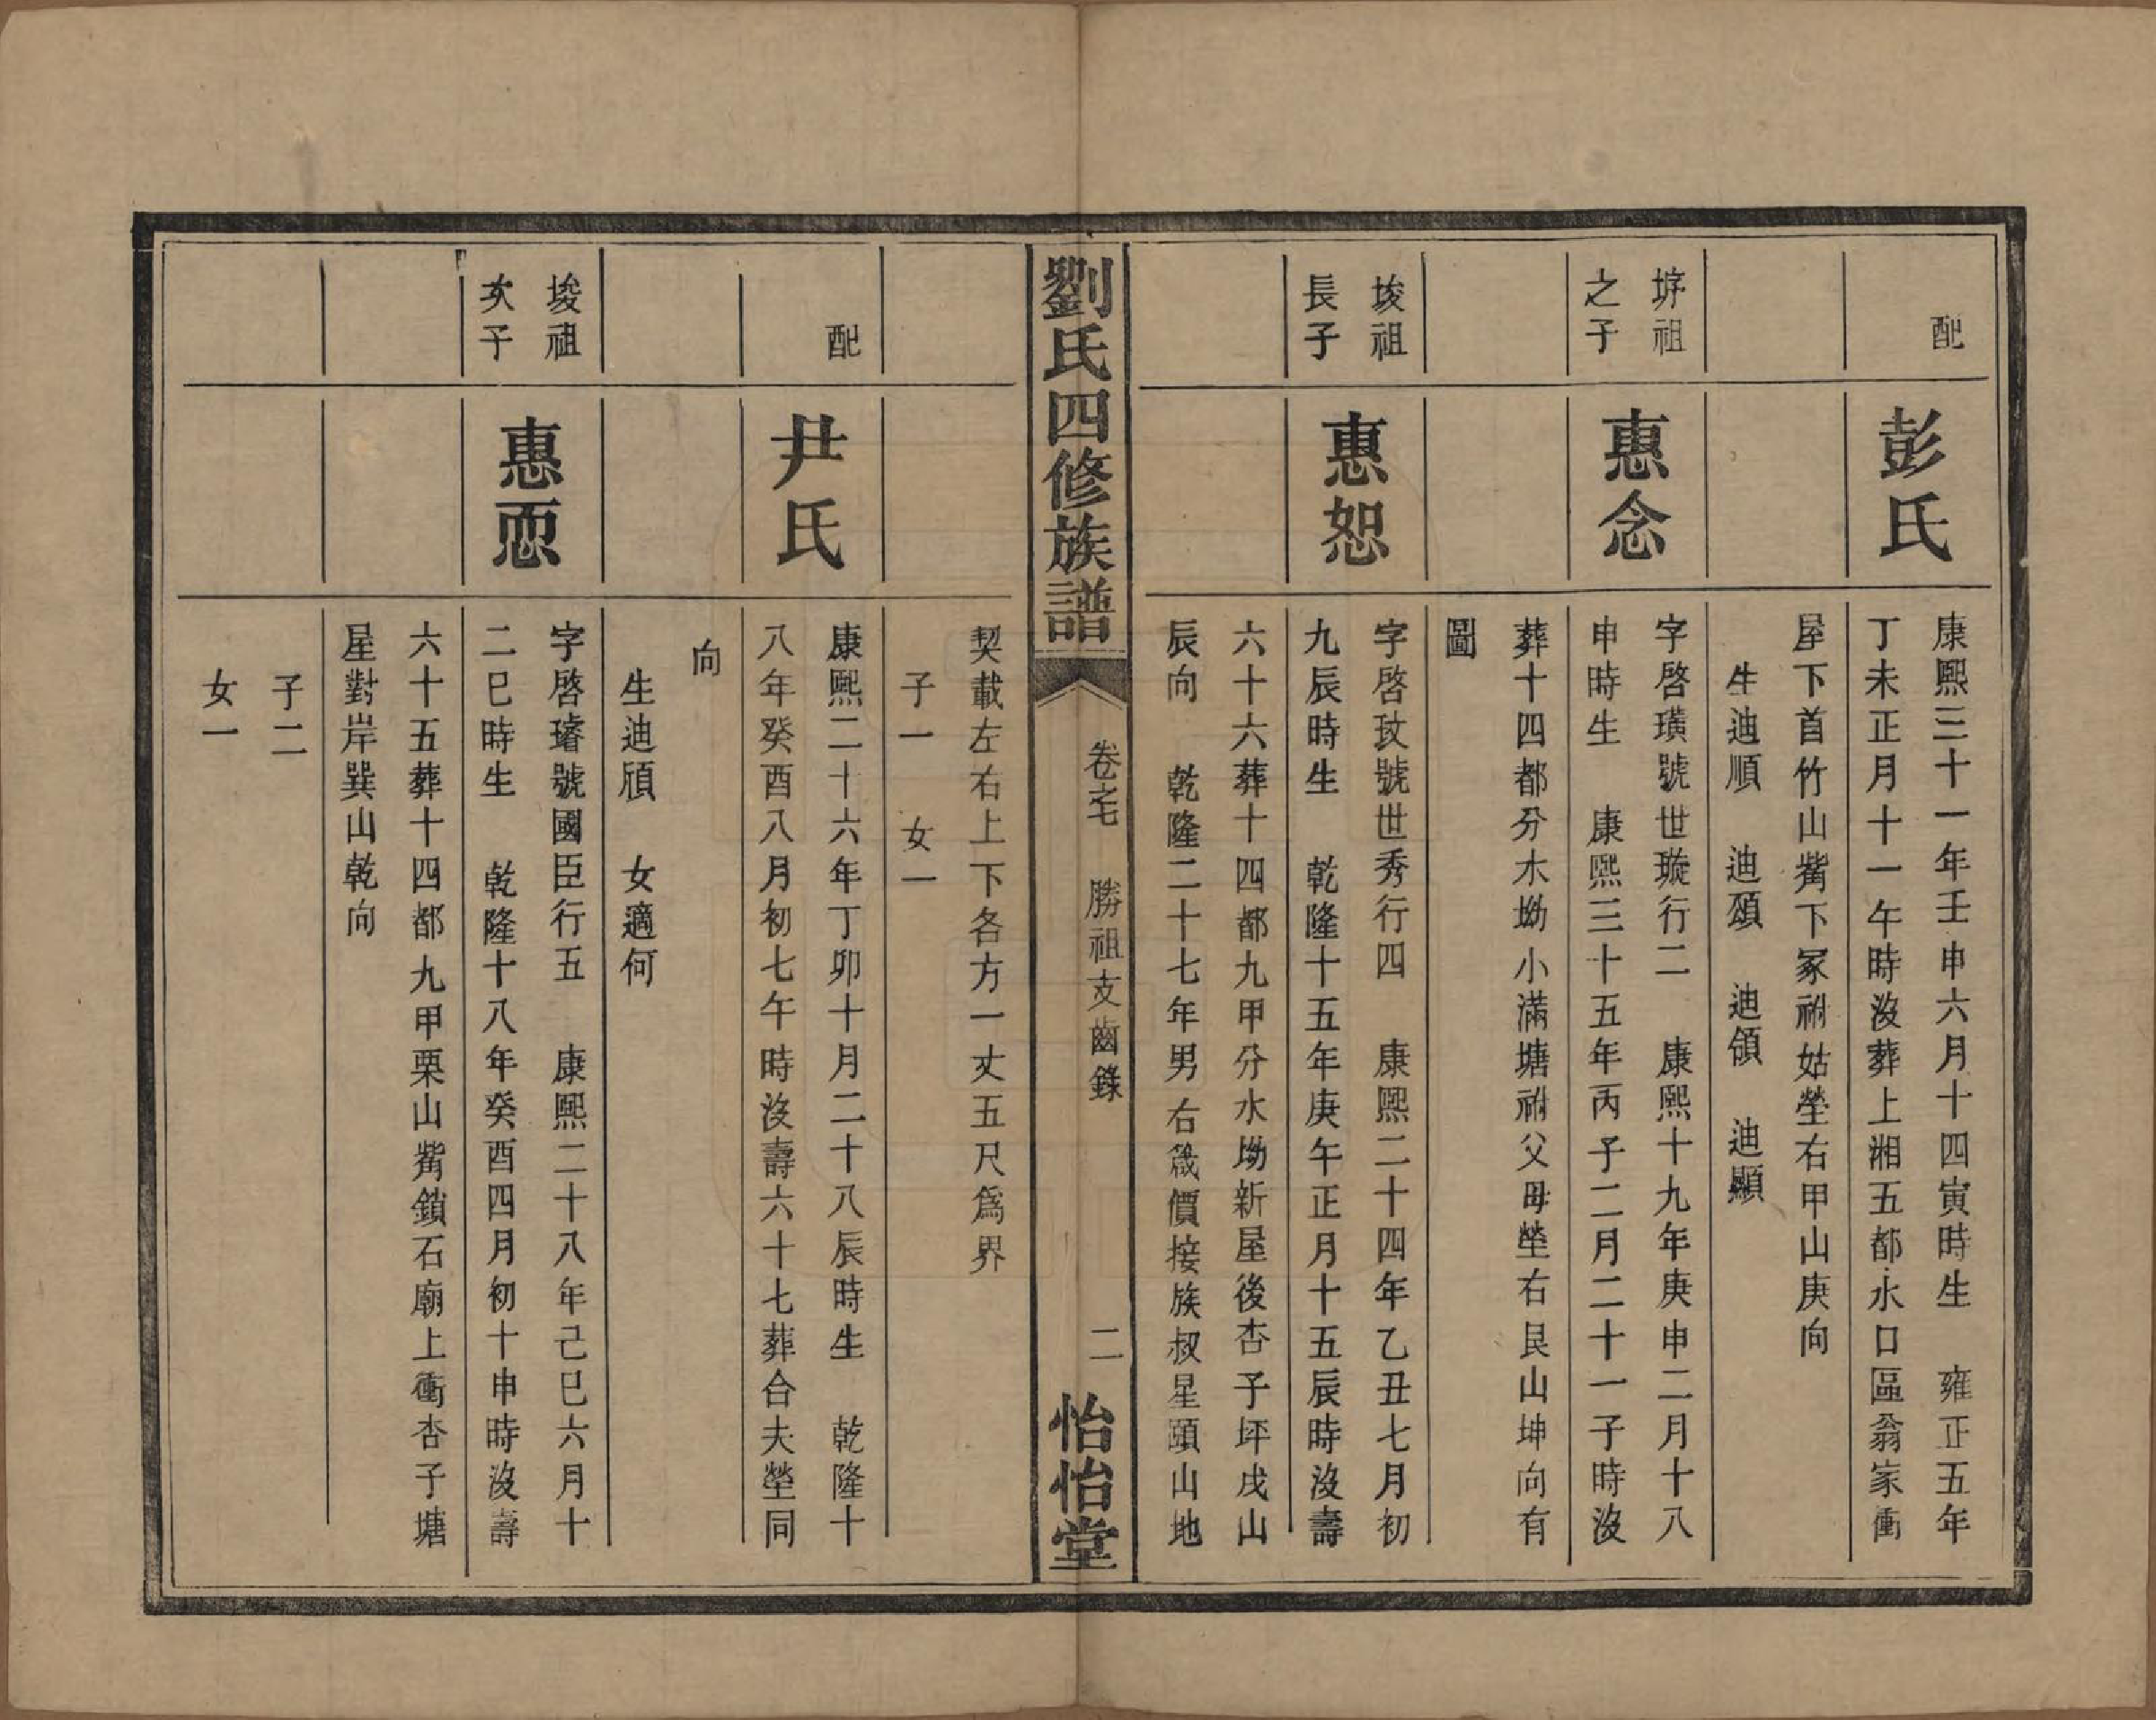 配
彭氏
康熙三十一年壬申六月十四寅時生　雍正五年
丁未正月十一午時沒葬上湘五都永口區翁家衝
屋下首竹山觜下冢祔姑塋右甲山庚向
生迪順　迪頌　迪領　迪顯
㘧祖
之子
惠念
字啓璜號世璇行二　康熙十九年庚申二月十八
申時生　康熙三十五年丙子二月二十一子時沒
葬十四都分水坳小滿塘祔父母塋右艮山坤向有
圖
埈祖
長子
惠恕
字啓玟號世秀行四　康熙二十四年乙丑七月初
九辰時生　乾隆十五年庚午正月十五辰時沒壽
六十六葬十四都九甲分水坳新屋後杏子坪戌山
辰向　乾隆二十七年男右箴價接族叔星頤山地
劉氏四修族譜
卷之七　勝祖支齒錄
二
怡怡堂
契載左右上下各方一丈五尺爲界
子一　女一
配
尹氏
康熙二十六年丁卯十月二十八辰時生　乾隆十
八年癸酉八月初七午時沒壽六十七葬合夫塋同
向
生迪頎　女適何
埈祖
次子
惠恧
字啓璿號國臣行五　康熙二十八年己巳六月十
二巳時生　乾隆十八年癸酉四月初十申時沒壽
六十五葬十四都九甲栗山觜鎖石廟上衝杏子塘
星對岸巽山乾向
子二
女一